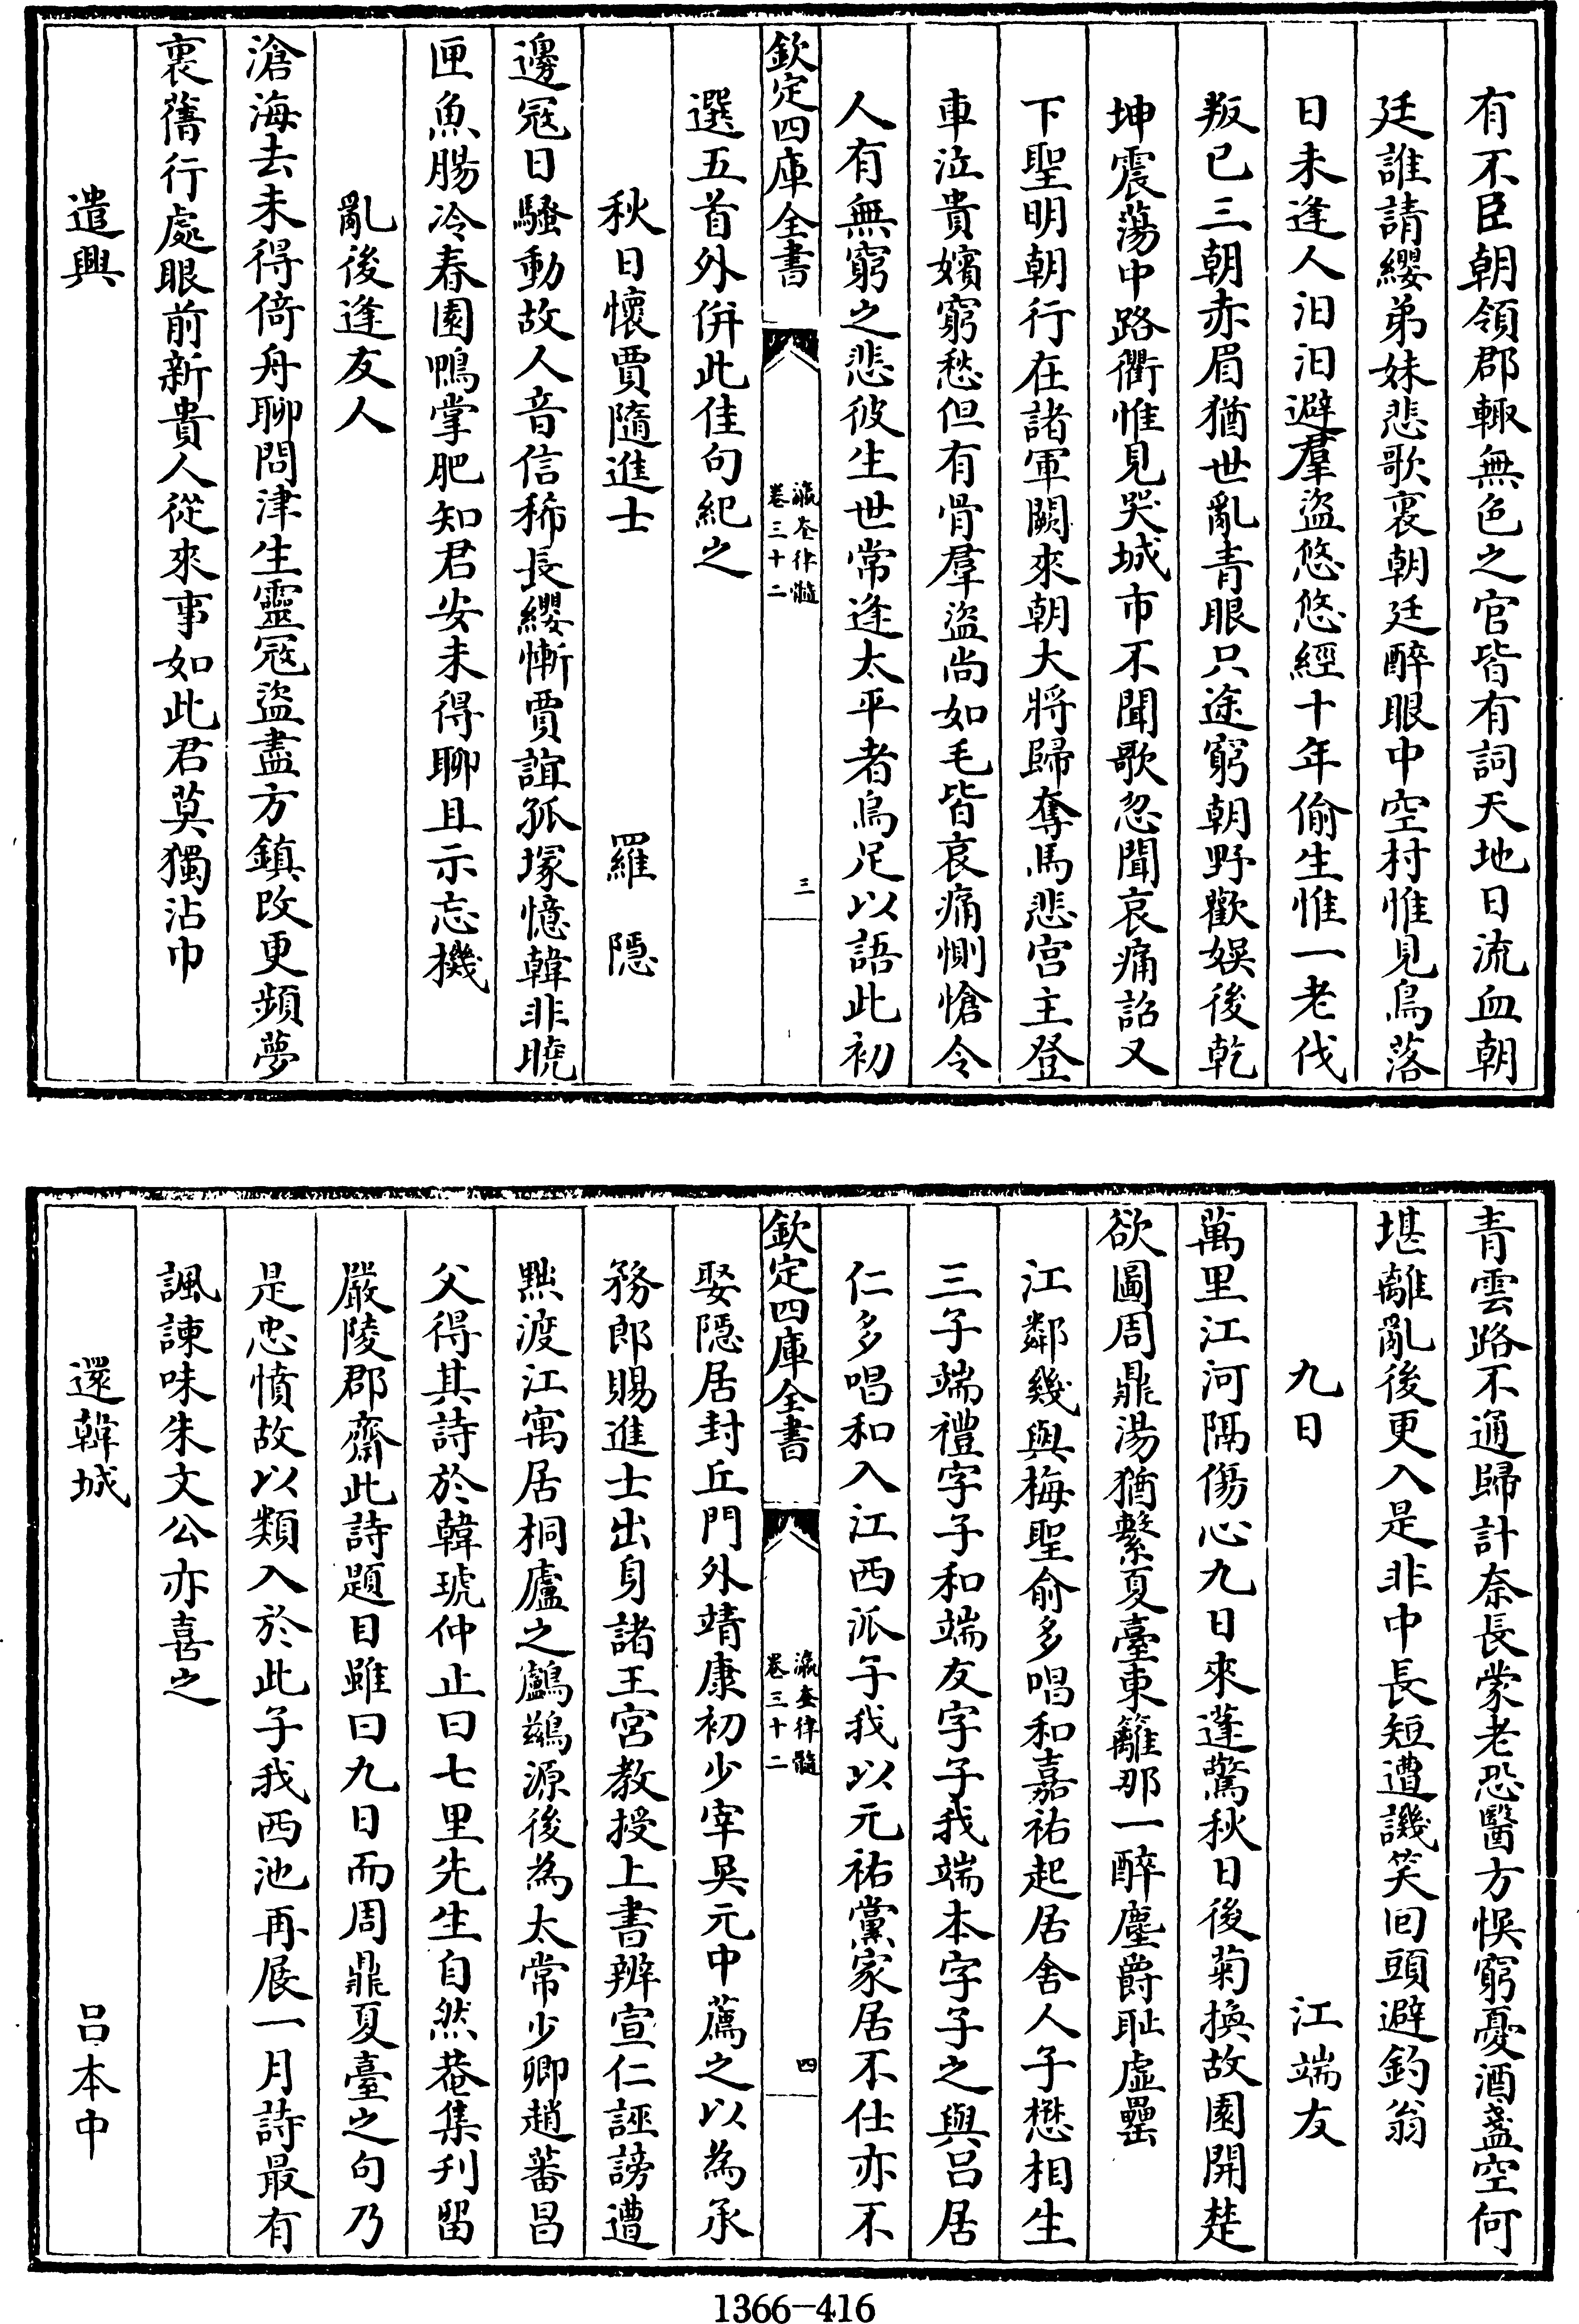 有不臣朝領郡輙無色之官皆有詞天地日流血朝
廷誰請纓弟妹悲歌裏朝廷醉眼中空村惟見鳥落
日未逢人汨汨避羣盜悠悠經十年偷生惟一老伐
叛已三朝赤眉猶世亂青眼只途窮朝野歡娱後乾
坤震蕩中路衢惟見哭城市不聞歌忽聞哀痛詔又
下聖明朝行在諸軍闕來朝大將歸奪馬悲宫主登
車泣貴嬪窮愁但有骨羣盜尚如毛皆哀痛惻愴令
人有無窮之悲彼生世常逢太平者烏足以語此初
欽定四庫全書
瀛奎律髓
卷三十二
三
選五首外併此佳句紀之
秋日懷賈隨進士 羅隱
邊冦日騷動故人音信稀長纓慚賈誼孤塚憶韓非曉
匣魚腸冷春園鴨掌肥知君安未得聊且示忘機
亂後逢友人
滄海去未得倚舟聊問津生靈冦盜盡方鎮改更頻夢
裏舊行處眼前新貴人從來事如此君莫獨沾巾
遣興
青雲路不通歸計奈長蒙老恐醫方悞窮憂酒盞空何
堪離亂後更入是非中長短遭譏笑回頭避釣翁
九日 江端友
萬里江河隔傷心九日來蓬驚秋日後菊換故園開楚
欲圖周鼎湯猶繫夏臺東籬那一醉塵爵耻虛罍
江鄰幾與梅聖俞多唱和嘉祐起居舍人子懋相生
三子端禮字子和端友字子我端本字子之與吕居
仁多唱和入江西派子我以元祐黨家居不仕亦不
欽定四庫全書
瀛奎律髓
卷三十二
四
娶隱居封丘門外靖康初少宰吳元中薦之以為承
務郎賜進士出身諸王宮教授上書辨宣仁誣謗遭
黜渡江寓居桐廬之鸕鷀源後為太常少卿趙蕃昌
父得其詩於韓琥仲止曰七里先生自然菴集刋留
嚴陵郡齋此詩題目雖曰九日而周鼎夏臺之句乃
是忠憤故以類入於此子我西池再展一月詩最有
諷諫味朱文公亦喜之
還韓城 吕本中
1366-416